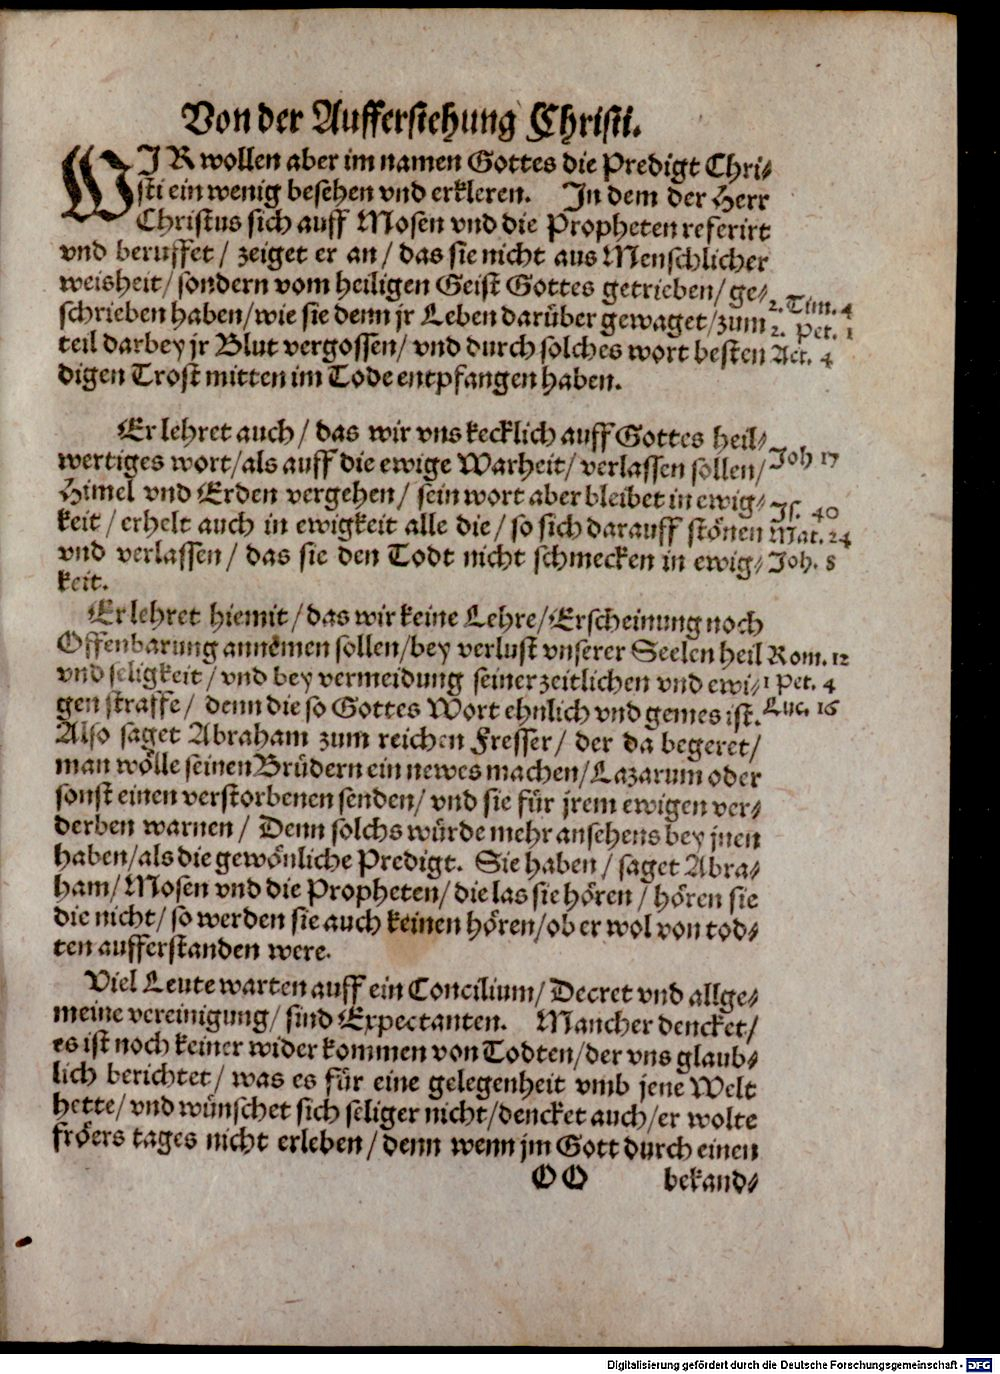 Von der Aufferstehung Christi.
WIR wollen aber im namen Gottes die Predigt Chri-
sti ein wenig besehen vnd erkleren. In dem der Herr
Christus sich auff Mosen vnd die Propheten referirt
vnd beruffet / zeiget er an / das sie nicht aus Menschlicher
weisheit / sondern vom heiligen Geist Gottes getrieben / ge-
2. Tim. 4
schrieben haben / wie sie denn jr Leben darüber gewaget / zum
2. Pet. 1
teil darbey jr Blut vergossen / vnd durch solches wort besten
Act. 4
digen Trost mitten im Tode entpfangen haben.
Er lehret auch / das wir vns kecklich auff Gottes heil-
wertiges wort / als auff die ewige Warheit / verlassen sollen /
Joh 17
Himel vnd Erden vergehen / sein wort aber bleibet in ewig-
Js. 40
keit / erhelt auch in ewigkeit alle die / so sich darauff stönen
Mat. 24
vnd verlassen / das sie den Todt nicht schmecken in ewig-
Joh. 8
keit.
Er lehret hiemit / das wir keine Lehre / Erscheinung noch
Offenbarung annemen sollen / bey verlust vnserer Seelen heil
Rom. 12
vnd seligkeit / vnd bey vermeidung seiner zeitlichen vnd ewi-
1 Pet. 4
gen straffe / denn die so Gottes Wort ehnlich vnd gemes ist.
Luc. 16
Also saget Abraham zum reichen Fresser / der da begeret /
man wölle seinen Brüdern ein newes machen / Lazarum oder
sonst einen verstorbenen senden / vnd sie für jrem ewigen ver-
derben warnen / Denn solchs würde mehr ansehens bey jnen
haben / als die gewönliche Predigt. Sie haben / saget Abra-
ham / Mosen vnd die Propheten / die las sie hören / hören sie
die nicht / so werden sie auch keinen hören / ob er wol von tod-
ten aufferstanden were.
Viel Leute warten auff ein Concilium / Decret vnd allge-
meine vereinigung / sind Expectanten. Mancher dencket /
es ist noch keiner wider kommen von Todten / der vns glaub-
lich berichtet / was es für eine gelegenheit vmb jene Welt
hette / vnd wünschet sich seliger nicht / dencket auch / er wolte
fröers tages nicht erleben / denn wenn jm Gott durch einen
OO bekand-
Digitalisierung gefördert durch die Deutsche Forschungsgemeinschaft - DFG